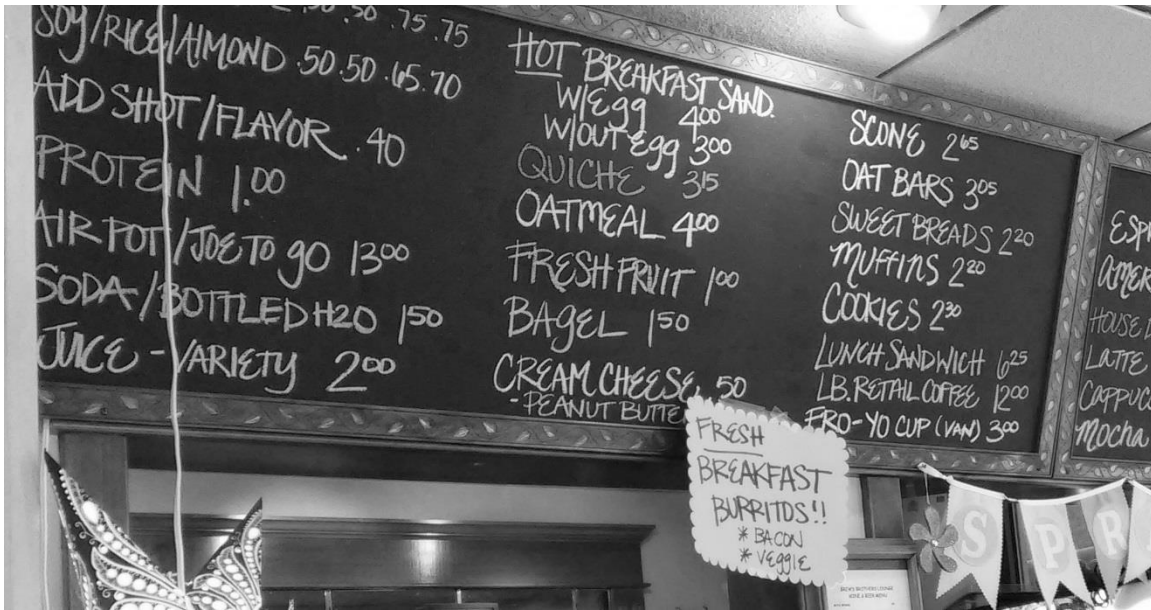 .50 .50 .75 .75
SOY/RICE/ALMOND .50 .50 .65 .70
ADD SHOT/FLAVOR .40
PROTEIN 1.00
AIR POT/JOE TO go 13.00
SODA/BOTTLED H2O 1.50
JUICE - VARIETY 2.00
HOT BREAKFAST SAND.
W/Egg 4.00
W/OUT Egg 3.00
QUICHE 3.15
OATMEAL 4.00
FRESH FRUIT 1.00
BAGEL 1.50
CREAM CHEESE .50
- PEANUT BUTTE
SCONE 2.65
OAT BARS 3.05
SWEET BREADS 2.20
MUFFINS 2.20
COOKIES 2.30
LUNCH SANDWICH 6.25
LB. RETAIL COFFEE 12.00
FRO-YO CUP (VAN) 3.00
ESPR
AMER
HOUSE
LATTE
CAPPUCC
Mocha
FRESH
BREAKFAST
BURRITOS!!
* BACON
* VEGGIE
SPR